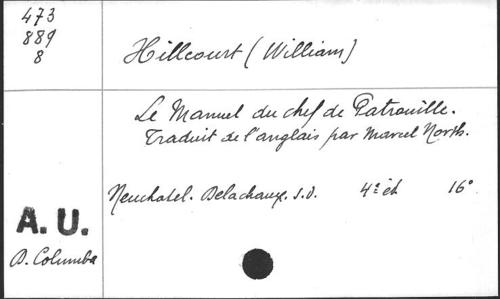 473
889
8
Hillcourt (William)
Le Manuel du chef de Patrouille.
Traduit de l'anglais par Marcel North.
Neuchatel. Delachaux. s.d. 4e ed 16°
A. U.
D. Columba